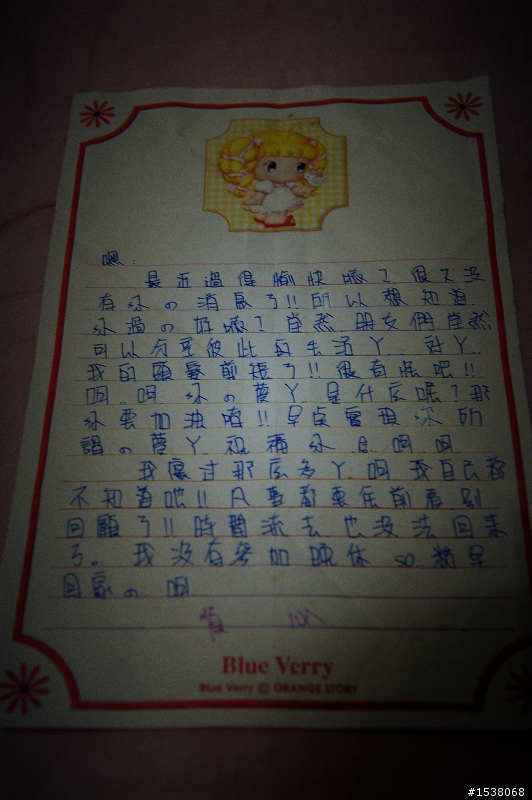 嘿:
最近過得愉快嗎？很久沒
有你の消息了!!所以想知道
你過の好嗎？自然 朋友偶自然
可以分享彼此的生活ㄚ 對ㄚ
我的頭髮剪短了!!很有惦吧!!
呵 呵 你の夢ㄚ 是什麼呢？那
你要加油唷!!早點實現你所
謂の夢ㄚ 祝福你 e 呵 呵
我寫ㄉ那麼多ㄚ 呵 我自己都
不知道吔!! 凡事都要往前看 別
回顧了!!時間流去 也沒法回來
了。我沒有參加晚休 so 粉早
回家の 呵
Blue Verry
Blue Verry © ORANGE STORY
#1538068